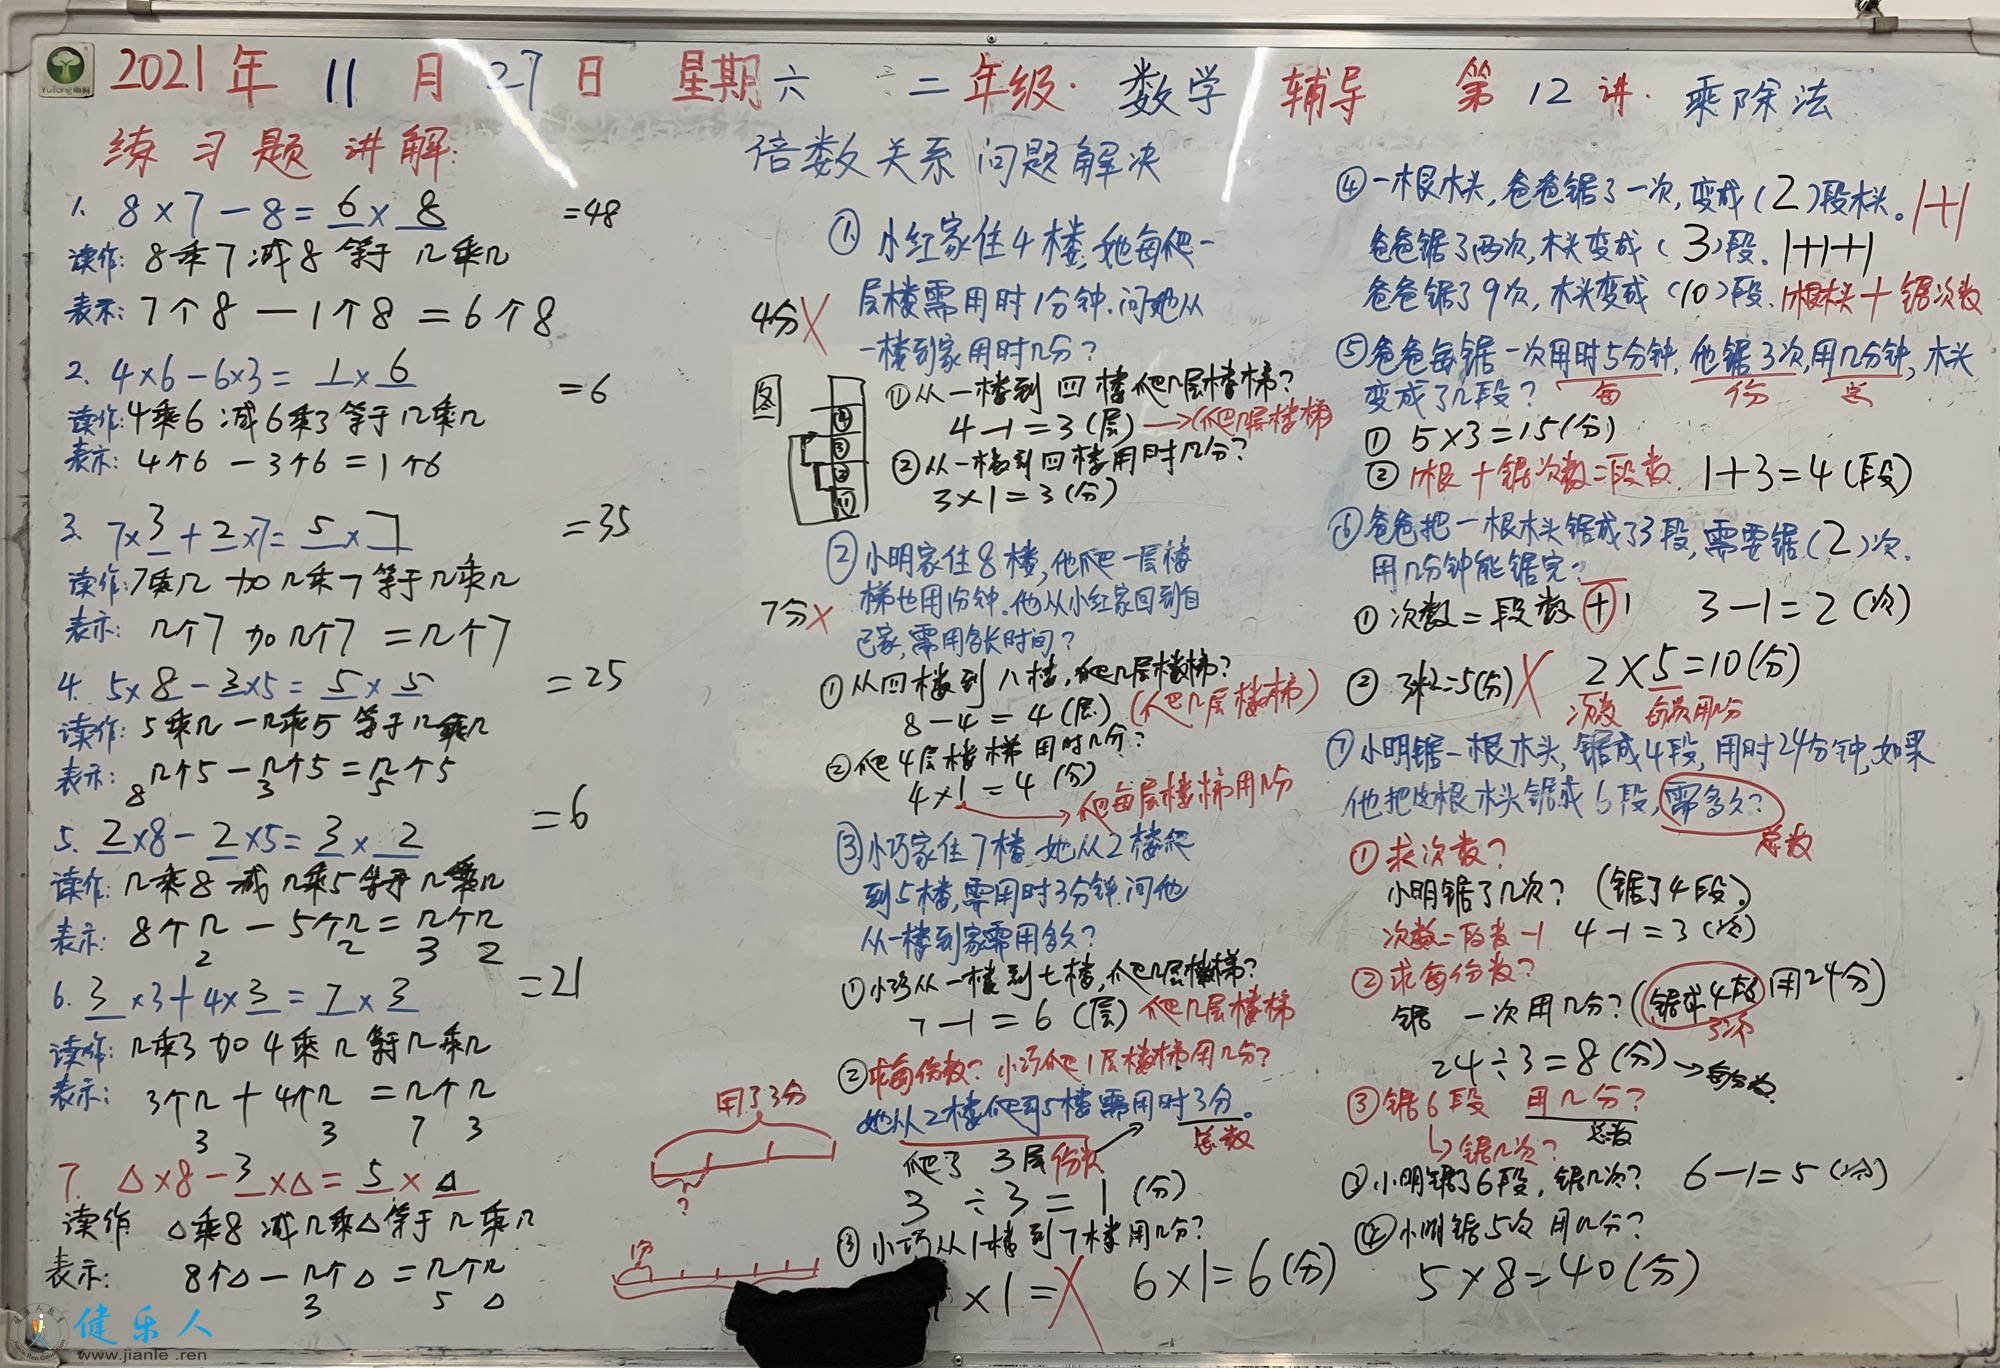 YuTong
2021年 11月 27日 星期六 二年级·数学 辅导 第12讲·乘除法
练习题讲解:
1. 8×7-8=6×8 =48
读作: 8乘7减8等于几乘几
表示: 7个8-1个8=6个8
2. 4×6-6×3=1×6 =6
读作: 4乘6减6乘3等于几乘几
表示: 4个6-3个6=1个6
3. 7×3+2×7=5×7 =35
读作: 7乘几加几乘7等于几乘几
表示: 几个7加几个7=几个7
4. 5×8-3×5=5×5 =25
读作: 5乘几-几乘5等于几乘几
表示: 几个5-几个5=几个5
8 3 5
5. 2×8-2×5=3×2 =6
读作: 几乘8减几乘5等于几乘几
表示: 8个几-5个几=几个几
2 2 3 2
6. 3×3+4×3=7×3 =21
读作: 几乘3加4乘几等于几乘几
表示: 3个几+4个几=几个几
3 3 7 3
7. △×8-3×△=5×△
读作 △乘8减几乘△等于几乘几
表示: 8个△-几个△=几个几
3 5 △
倍数关系问题解决
① 小红家住4楼,她每爬一
层楼需用时1分钟.问她从
一楼到家用时几分?
4分×
图
④
③
②
①
①从一楼到四楼爬几层楼梯?
4-1=3(层)→(爬几层楼梯)
②从一楼到四楼用时几分?
3×1=3(分)
②小明家住8楼,他爬一层楼
梯也用1分钟.他从小红家回到自
己家,需用多长时间?
7分×
①从四楼到八楼,爬几层楼梯?
8-4=4(层)(爬几层楼梯)
②爬4层楼梯用时几分?
4×1=4(分)
→爬每层楼梯用几分
③小巧家住7楼,她从2楼爬
到5楼,需用时3分钟.问他
从一楼到家需用多久?
①小巧从一楼到七楼,爬几层楼梯?
7-1=6(层)爬几层楼梯
②求每份数?小巧爬1层楼梯用几分?
她从2楼爬到5楼需用时3分。
爬了3层 份数 总数
3÷3=1(分)
用了3分
?
③小巧从1楼到7楼用几分?
×1=× 6×1=6(分)
④一根木头,爸爸锯了一次,变成(2)段木头。1+1
爸爸锯了两次,木头变成(3)段. 1+1+1
爸爸锯了9次,木头变成(10)段.1根木头+锯次数
⑤爸爸每锯一次用时5分钟,他锯3次,用几分钟,木头
变成了几段? 每 份 总
① 5×3=15(分)
② 1根+锯次数=段数. 1+3=4(段)
⑥爸爸把一根木头锯成了3段,需要锯(2)次.
用几分钟能锯完?
①次数=段数+1 3-1=2(次)
② 3+2=5(分)× 2×5=10(分)
次数 每次用几分
⑦小明锯一根木头,锯成4段,用时24分钟,如果
他把这根木头锯成6段,需多久?
总数
①求次数?
小明锯了几次?(锯了4段。)
次数=段数-1 4-1=3(次)
②求每份数?
锯一次用几分?(锯成4段用24分)
3次
24÷3=8(分)→每份数.
③锯6段 用几分?
↳锯几次? 总数
③小明锯了6段,锯几次? 6-1=5(次)
④小明锯5次用几分?
5×8=40(分)
健乐人
www.jianle.ren